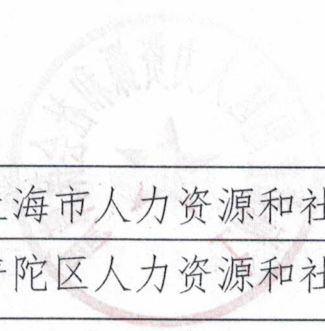 上海市人力资源和社
普陀区人力资源和社